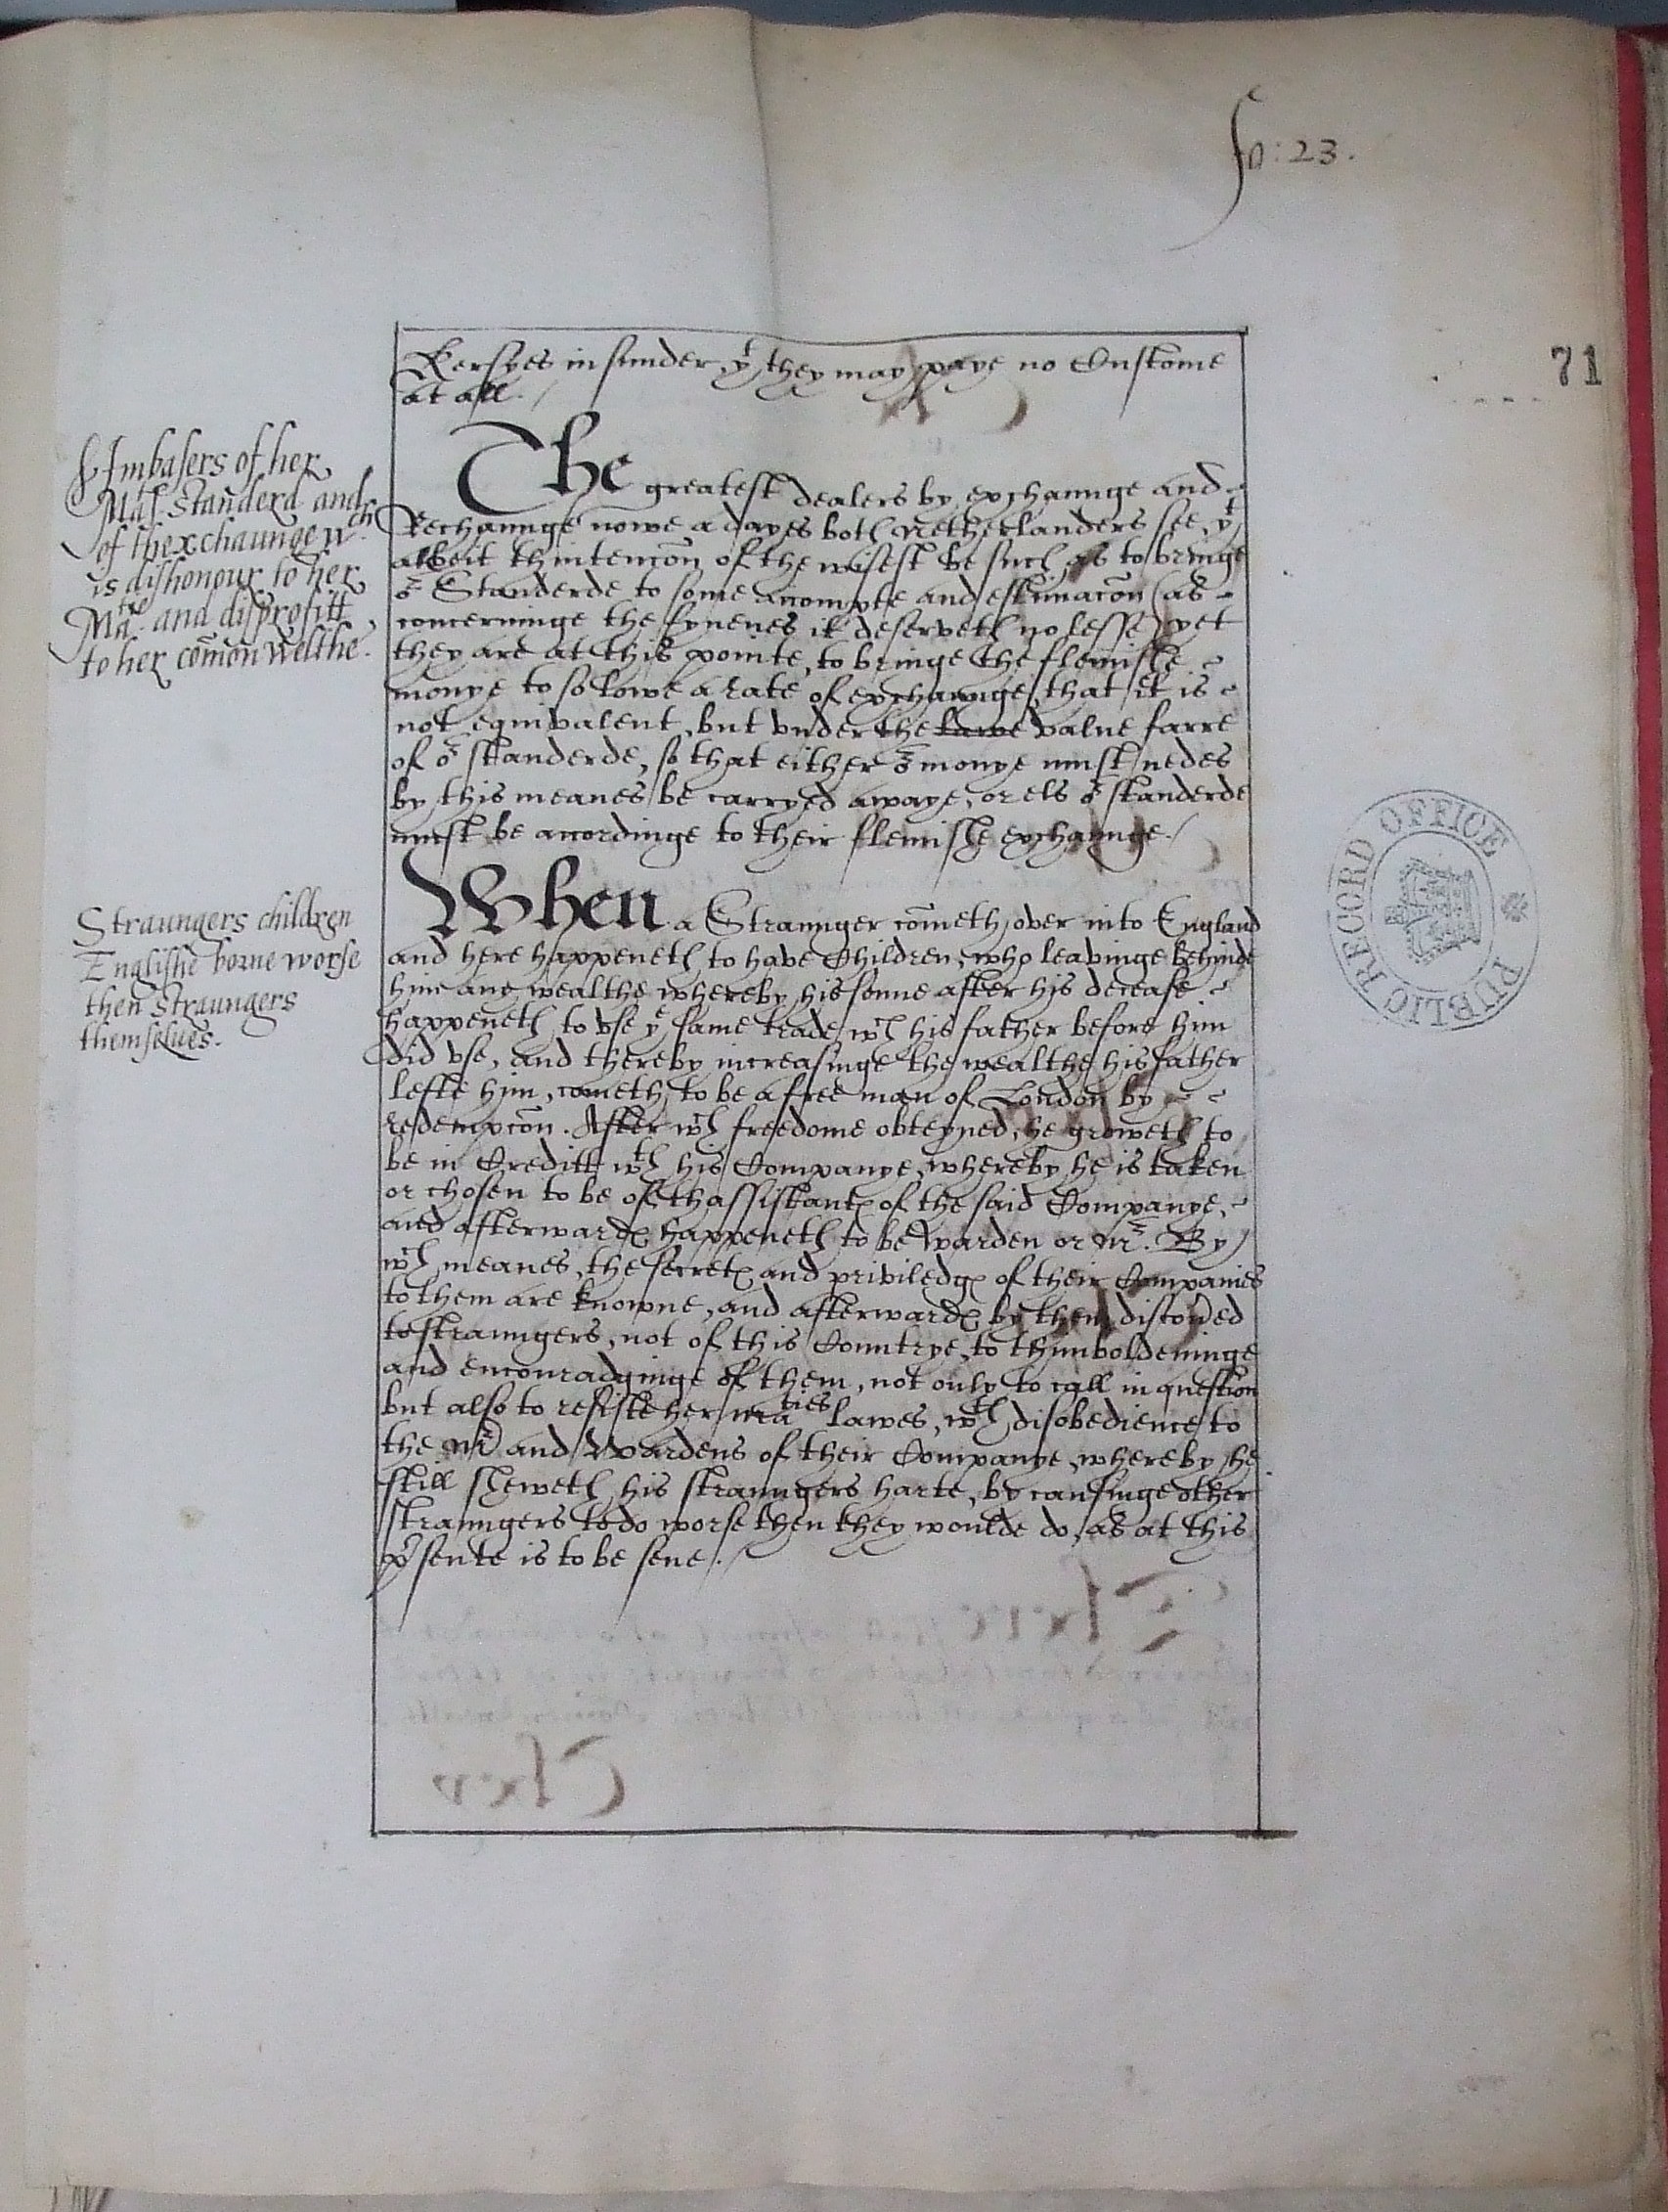 fo: 23.
71
Kersyes in sunder, yt they may paye no Custome
at all./
Imbasers of her
Mats. Standerd and
of thexchaunge wch
is dishonour to her
Matie. and disprofitt
to her com̄on welthe.
The greatest dealers by exchaunge and
Rechaunge nowe a dayes both Netherlanders see, yt
albeit thintencōn of the wisest be such as to bringe
or Standerde to some accompte and estimacōn (as
concerninge the fynenes it deserveth no lesse) yet
they are at this pointe, to bringe the flemishe
monye to so lowe a rate of exchaunge, that it is
not equivalent, but vnder the lawe value farre
of or standerde, so that either or monye must nedes
by this meanes be carryed awaye, or els or standerde
must be accordinge to their flemishe exchaunge./
Straungers children
Englishe borne worse
then straungers
themselues.
When a Straunger com̄eth over into England
and here happeneth to have Children, who leavinge behinde
him any wealthe whereby his sonne after his decease
happeneth to vse ye same trade wch his father before him
did vse, and thereby increasinge the wealthe his father
lefte him, cometh to be a free man of London by
redempcōn. After wch freedome obteyned, he groweth to
be in Creditt wth his Companye, whereby he is taken
or chosen to be of thassistantes of the said Companye,
and afterwardes happeneth to be Warden or Mr. By
wch meanes, the secretes and priviledges of their Companies
to them are knowne, and afterwardes by them discov̄ed
to straungers, not of this Countrye, to thimboldeninge
and encouradginge of them, not only to call in question
but also to resiste her Maties lawes, wth disobedience to
the Mr and Wardens of their Companye, whereby he
still sheweth his straungers harte, by causinge other
straungers to do worse then they woulde do, as at this
p̱sente is to be sene./
PUBLIC RECORD OFFICE